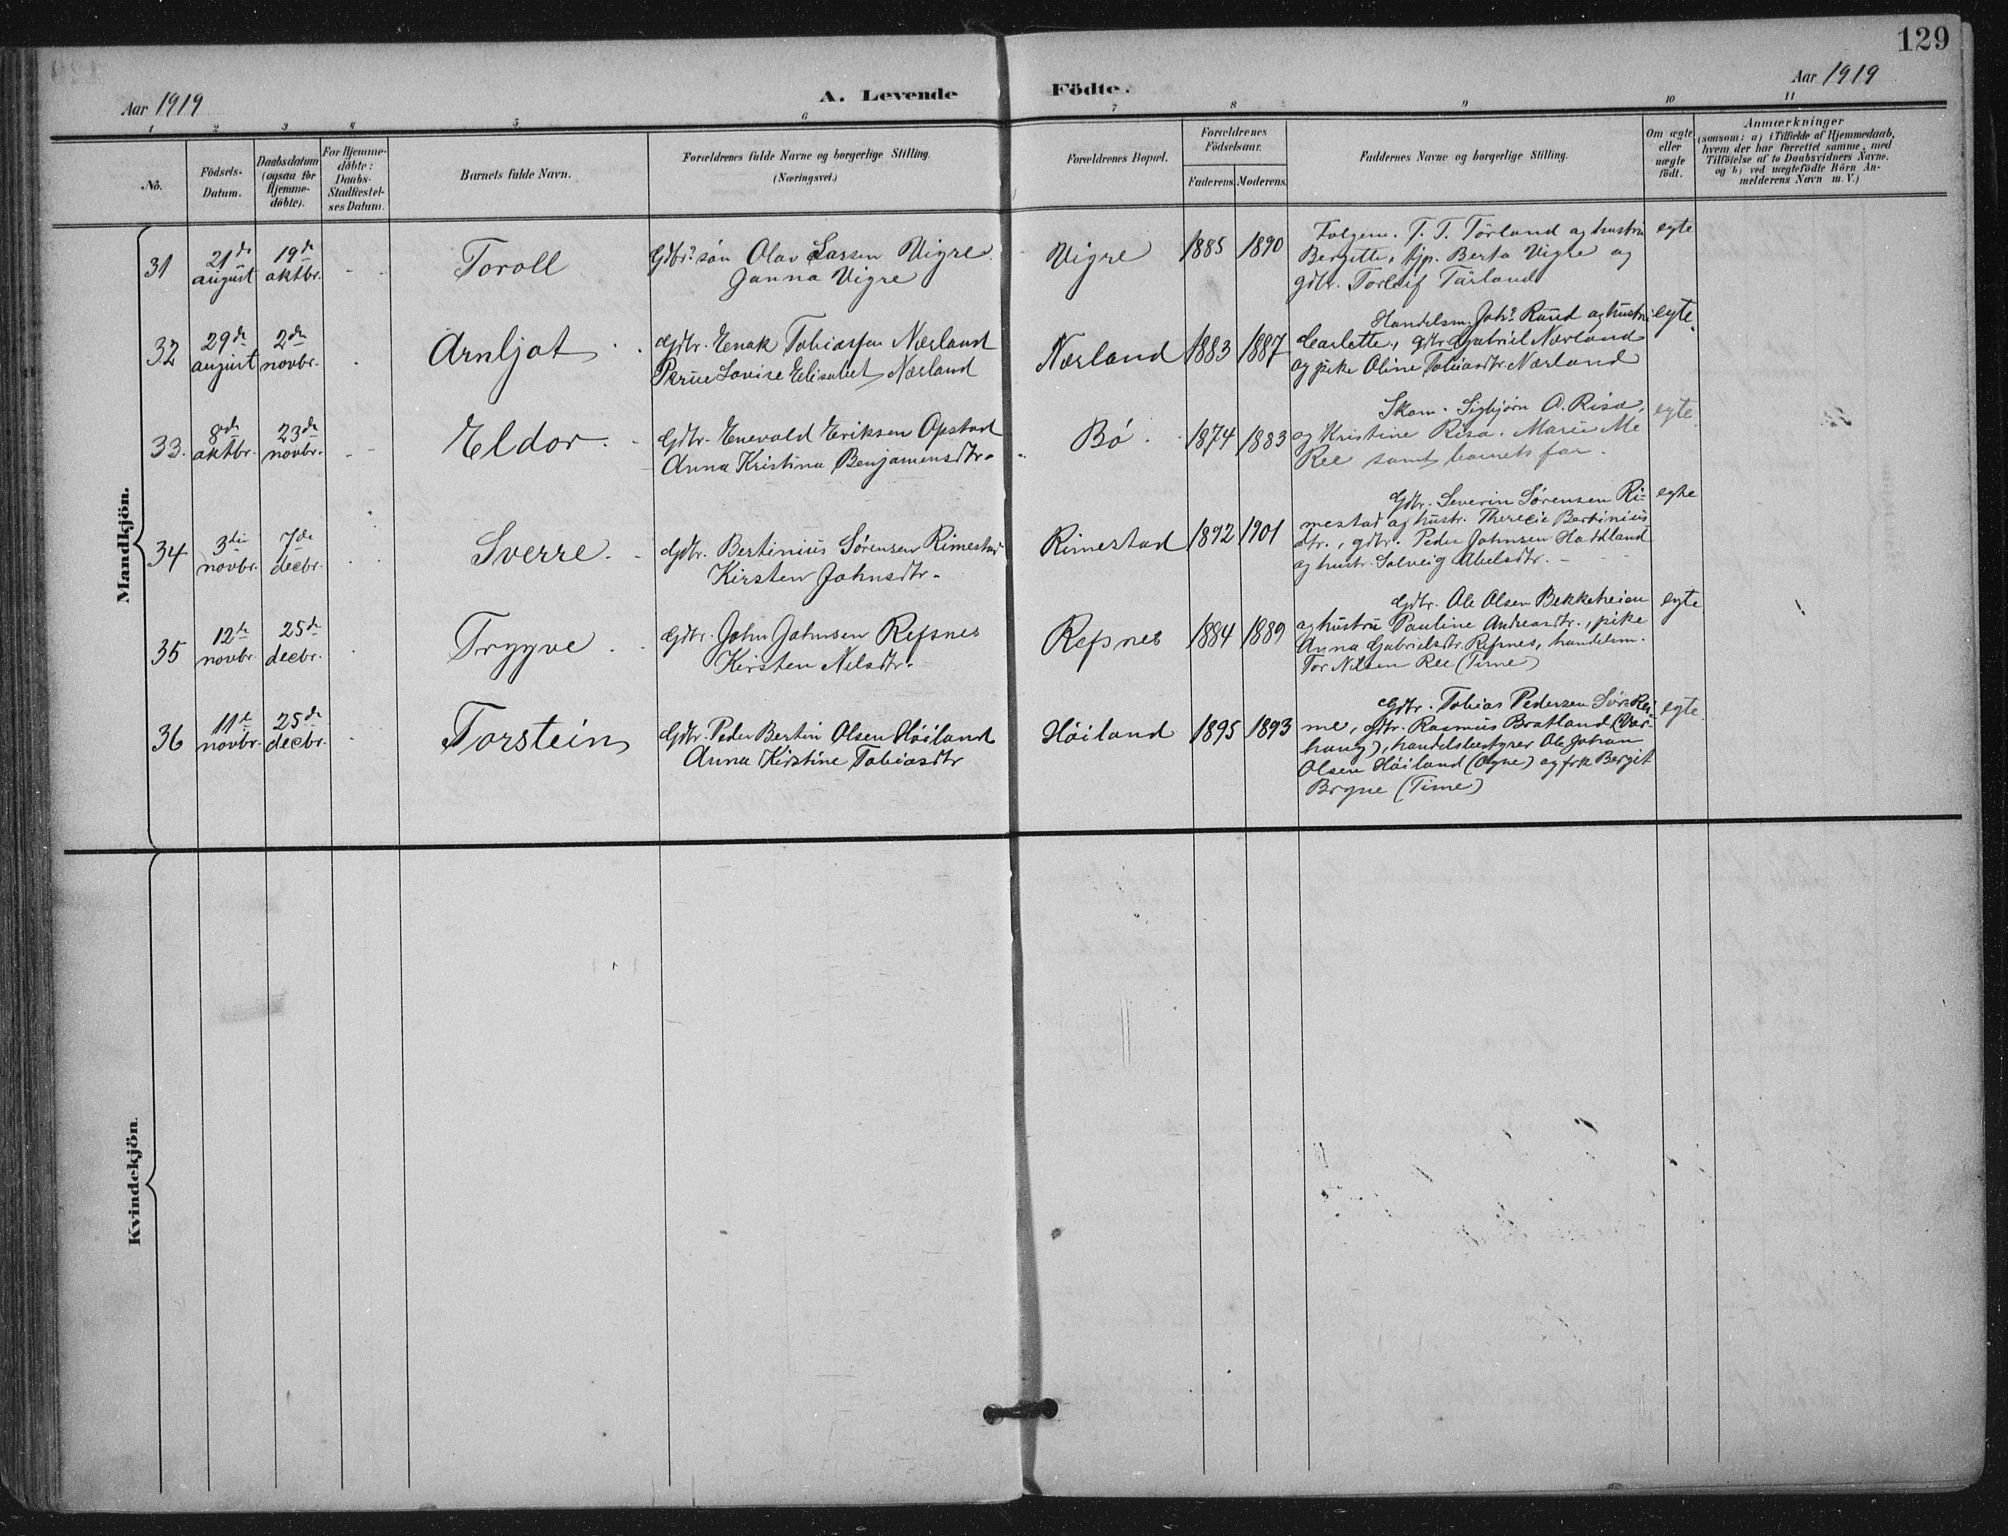 129
Aar 1919
A. Levende Födte.
Aar 1919
1 2 3 4 5 6 7 8 9 10 11
No.
Födsels-
Datum.
Daabsdatum
(ogsaa for
Hjemme-
döbte).
For Hjemme-
döbte:
Daabs-
Stadfæstel-
ses Datum.
Barnets fulde Navn.
Forældrenes fulde Navne og borgerlige Stilling.
(Næringsvei.)
Forældrenes Bopæl.
Forældrenes
Födselsaar.
Faderens. Moderens.
Faddernes Navne og borgerlige Stilling.
Om ægte
eller
uægte
födt.
Anmærkninger
(saasom: a) i Tilfælde af Hjemmedaab,
hvem der har forrettet samme, med
Tilföielse af to Daabsvidners Navne.
og b) ved uægtefödte Börn An-
melderens Navn m. V.)
Mandkjön.
31
21de
august
19de
oktbr.
Toroll
Gdbr. søn Olav Lassen Vigre
Janna Vigre
Vigre
1885 1890
T. T. Tørland og hustru
Bergitte, tjp. Berta Vigre og
gdbr. Torleif Tårland
egte
32
29de
august
2de
novbr.
Arnljot
Gdbr. Enok Tobiassen Nærland
Lovise Elisabet Nærland
Nærland
1883 1887
Handelsm. Joh. Ruud og hustru
Carlotte, gdbr. Gabriel Nærland
og pike Oline Tobiasdtr. Nærland
egte.
33.
8de
oktbr.
23de
novbr.
Eldor.
Gdbr. Enevald Eriksen Opstad
Anna Kristina Benjamensdtr.
Bö.
1874 1883
Skom. Sigbjørn A. Risa,
og Kristine Risa. Marie
Ree samt barnets far.
egte.
34
3die
novbr.
7de
decbr.
Sverre.
Gdbr. Bertinius Sørensen Rimestad
Kirsten Johnsdtr.
Rimestad
1892 1901
Gdbr. Severin Sørensen Ri-
mestad og hustr. Therecie Bertinius
dtr., gdbr. Peder Johnsen Haddland
og hustr. Solveig Abelsdtr. -
egte
35
12te
novbr.
25de
decbr.
Trygve
Gdbr. John Johnsen Refsnes
Kirsten Nilsdtr.
Refsnes
1884 1889
Gdbr. Ole Olsen Bekkeheien
og hustru Pauline Andreasdtr., pike
Anna Gabrielsdtr. Refsnes, handelsm.
Tor Nilsen Ree (Time)
egte
36
11te
novbr.
25de
decbr.
Torstein
Gdbr. Peder Bertin Olsen Höiland
Anna Kirstine Tobiasdtr
Höiland
1895 1893
Gdbr. Tobias Pedersen Sör-Rei
me, gdbr. Rasmus Bratland (Var-
haug), handelsbestyrer Ole Johan
Olsen Höiland (Ogne) og frk Bergit
Bryne (Time)
egte.
Kvindekjön.